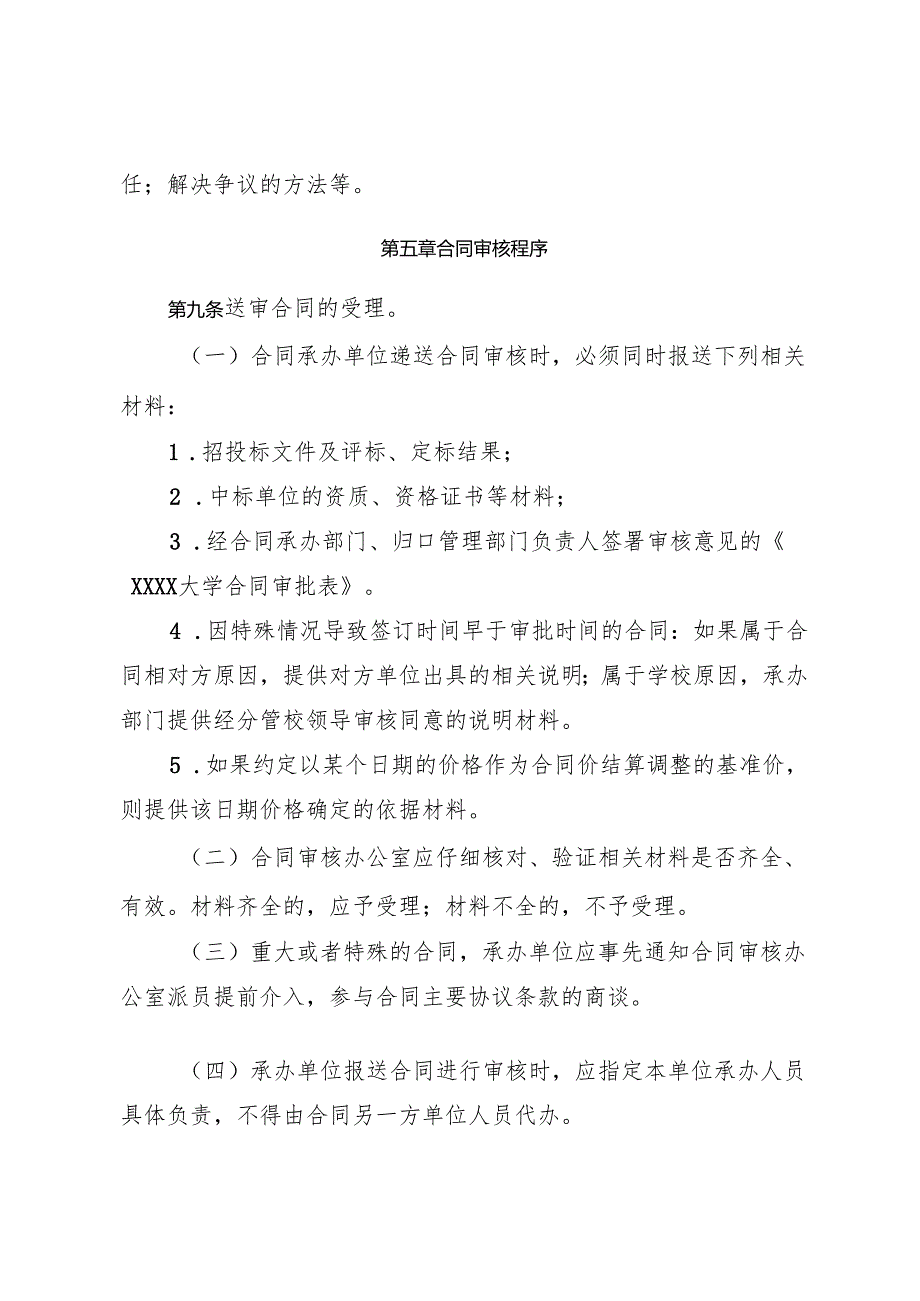 任；解决争议的方法等。
第五章合同审核程序
第九条送审合同的受理。
（一）合同承办单位递送合同审核时，必须同时报送下列相关
材料：
1 .招投标文件及评标、定标结果；
2 .中标单位的资质、资格证书等材料；
3 .经合同承办部门、归口管理部门负责人签署审核意见的《
XXXX大学合同审批表》。
4 .因特殊情况导致签订时间早于审批时间的合同：如果属于合
同相对方原因，提供对方单位出具的相关说明；属于学校原因，承办
部门提供经分管校领导审核同意的说明材料。
5 .如果约定以某个日期的价格作为合同价结算调整的基准价，
则提供该日期价格确定的依据材料。
（二）合同审核办公室应仔细核对、验证相关材料是否齐全、
有效。材料齐全的，应予受理；材料不全的，不予受理。
（三）重大或者特殊的合同，承办单位应事先通知合同审核办
公室派员提前介入，参与合同主要协议条款的商谈。
（四）承办单位报送合同进行审核时，应指定本单位承办人员
具体负责，不得由合同另一方单位人员代办。